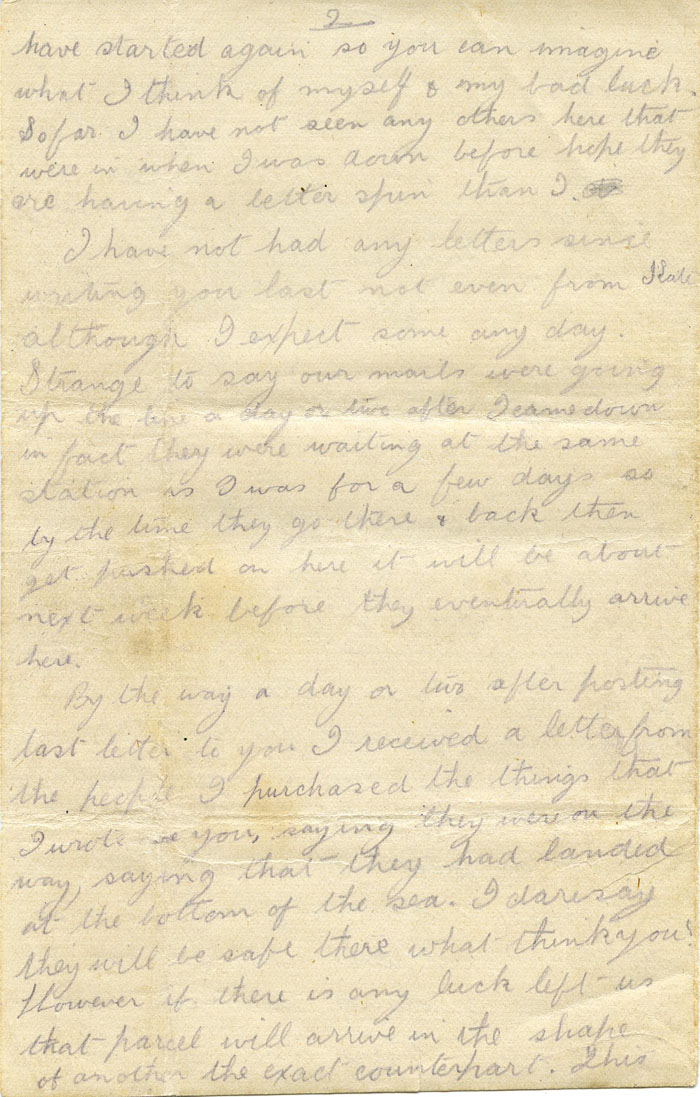 2
have started again so you can imagine
what I think of myself & my bad luck.
So far I have not seen any others here that
were in when I was down before hope they
are having a better spin than I.
I have not had any letters since
writing you last not even from Kate
although I expect some any day.
Strange to say our mails were going
up the line a day or two after I came down
in fact they were waiting at the same
station as I was for a few days so
by the time they go there & back then
get pushed on here it will be about
next week before they eventually arrive
here.
By the way a day or two after posting
last letter to you I received a letter from
the people I purchased the things that
I wrote you, saying they were on the
way, saying that they had landed
at the bottom of the sea. I daresay
they will be safe there what think you?
However if there is any luck left us
that parcel will arrive in the shape
of another the exact counterpart. This